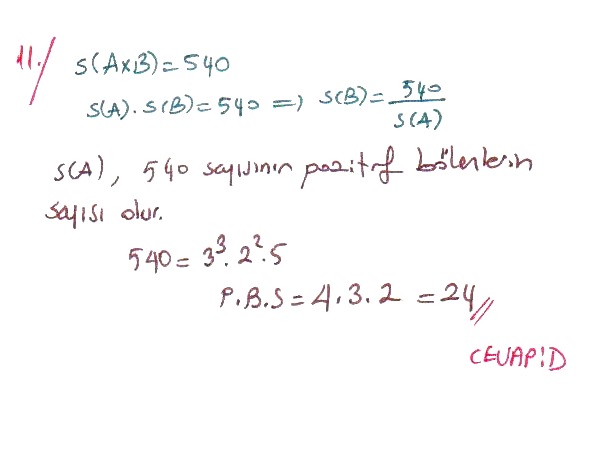 11./ s(AxB)=540
s(A).s(B)=540 => s(B)=540/s(A)
s(A), 540 sayısının pozitif bölenlerin
sayısı olur.
540=3³.2².5
P.B.S=4.3.2=24//
CEVAP:D